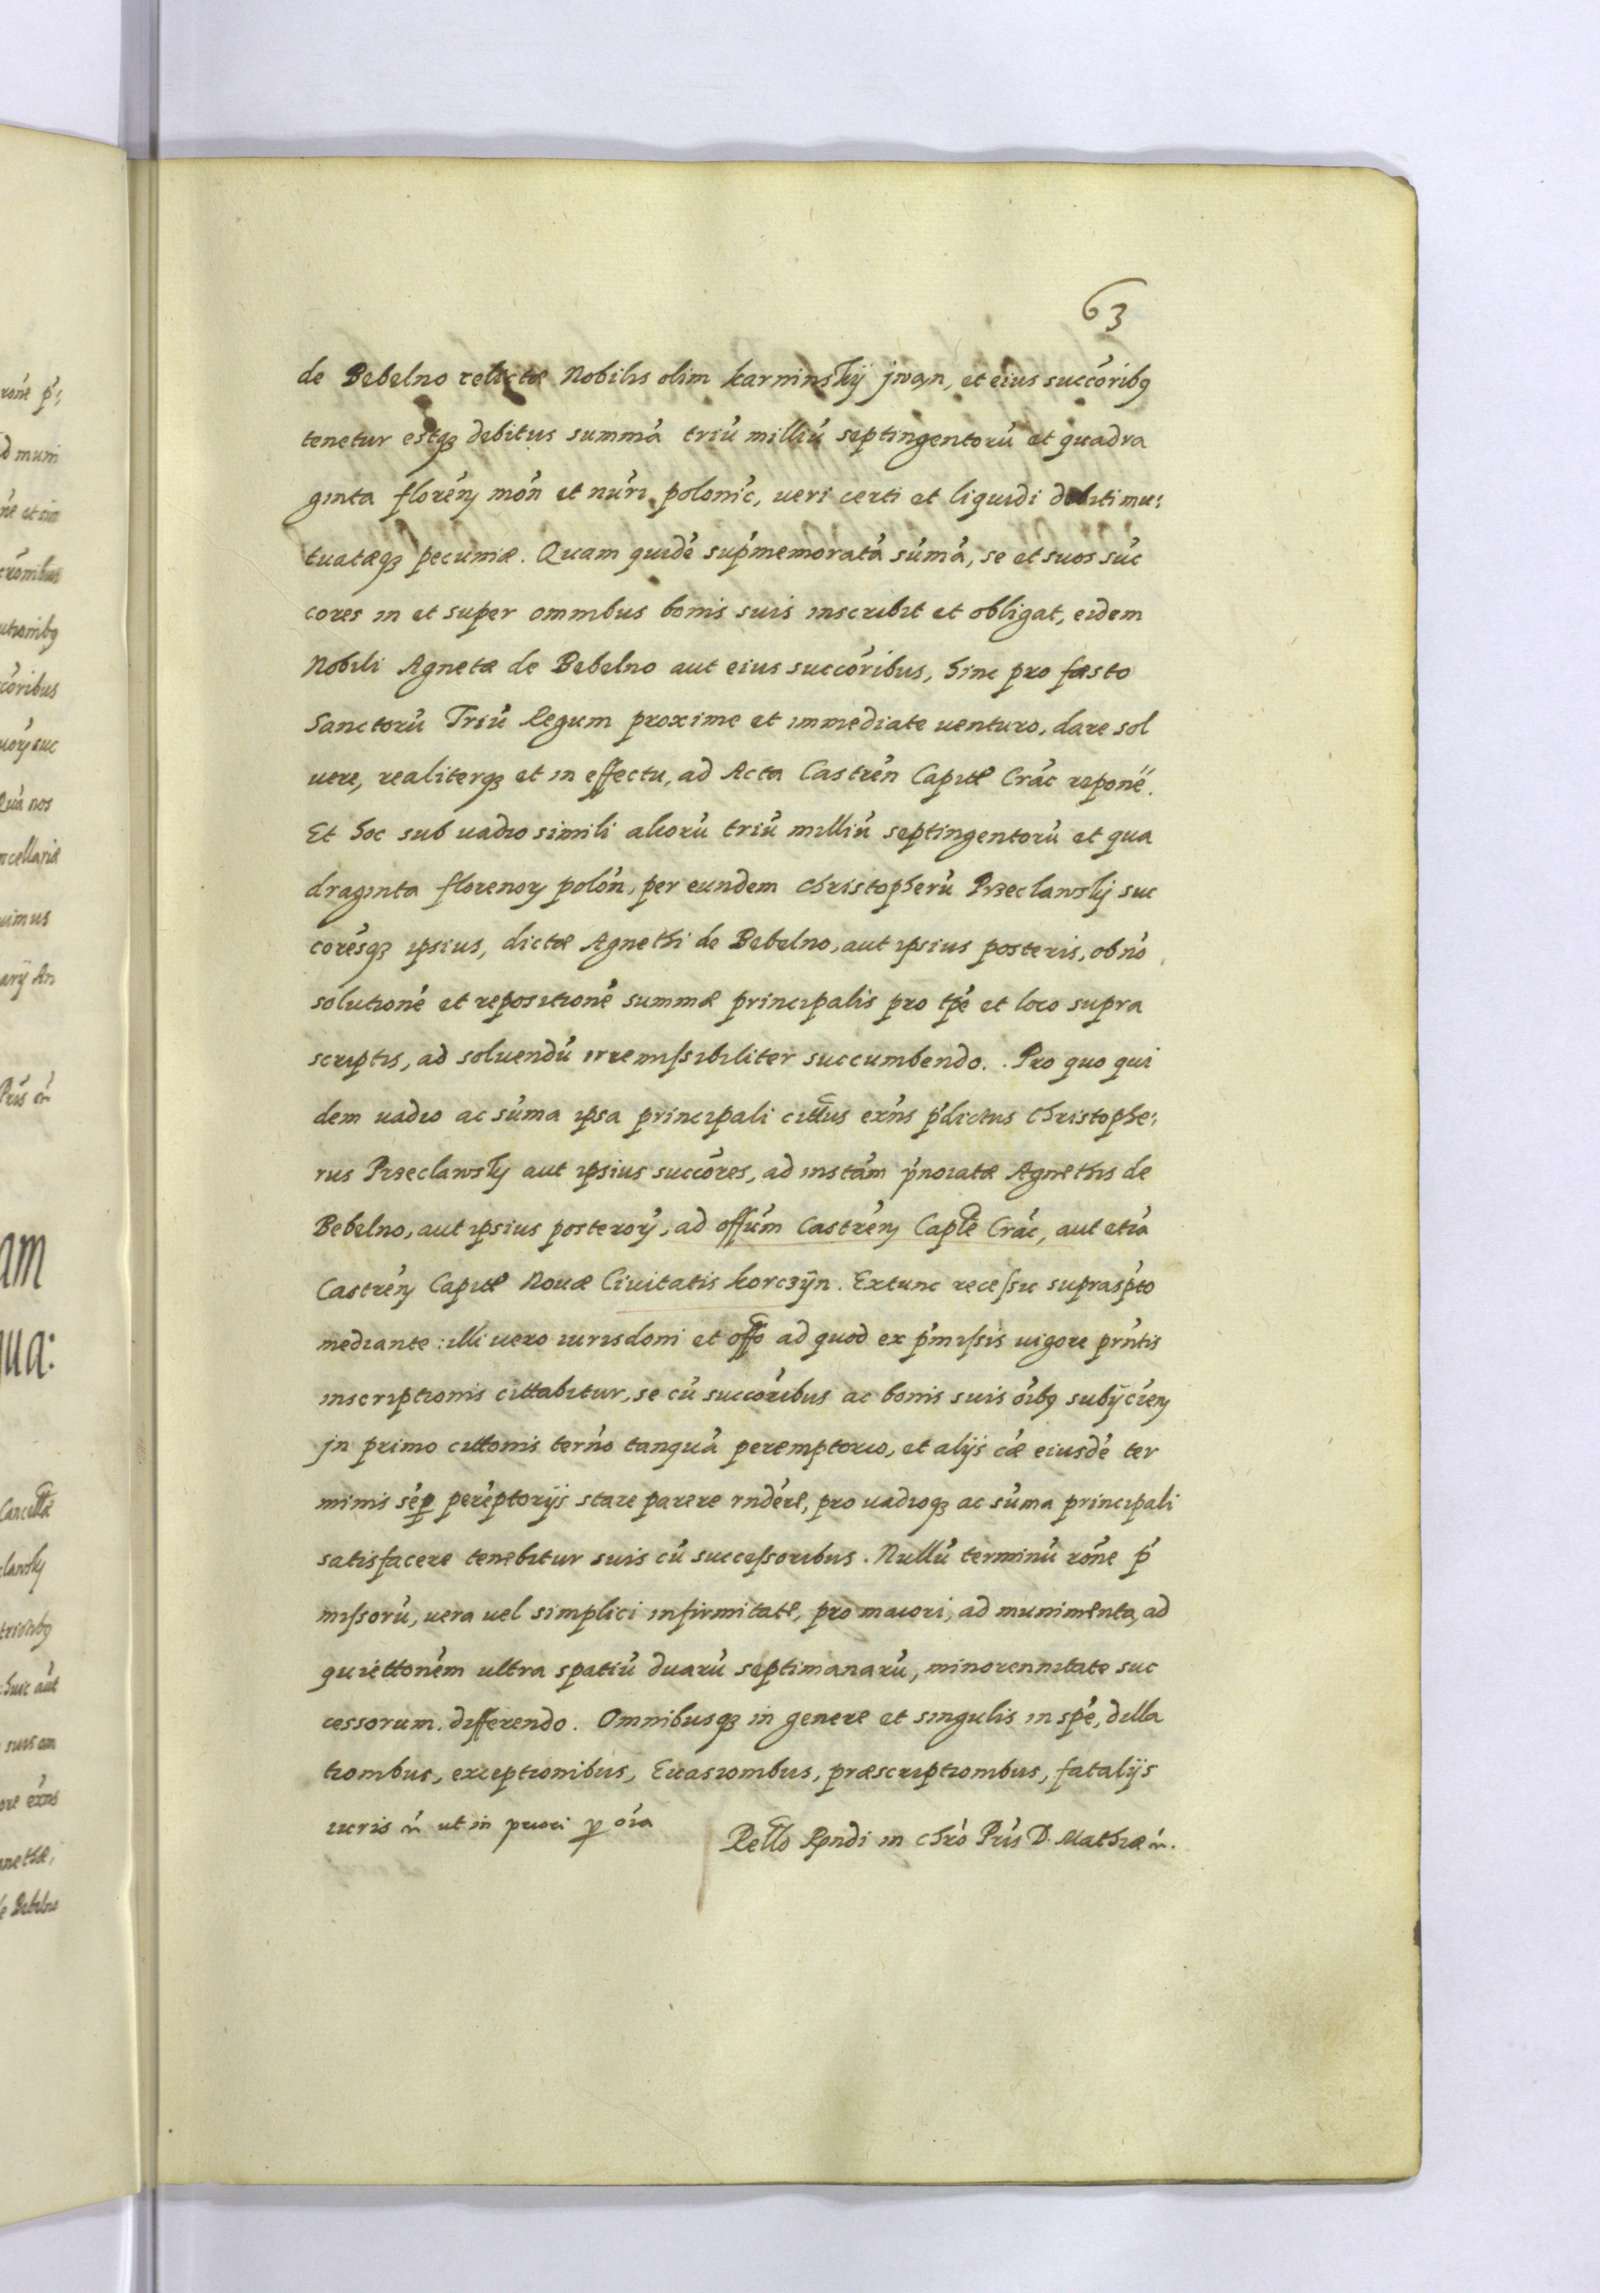 63
de Bebelno relictæ Nobilis olim karninskij jwan, et eius succo᷑ribꝫ
tenetur estqꝫ debitus summa᷑ triu᷑ milliu᷑ septingentoru᷑ et quadra
ginta flore᷑nꝝ mo᷑n et nu᷑ri poloni᷑c, ueri certi et liquidi debiti mu:
tuatæqꝫ pecuniæ. Quam quide᷑ sup᷑memorata᷑ su᷑ma᷑, se et suos suc᷑
cores in et super omnibus bonis suis inscribit et obligat, eidem
Nobili Agnetæ de Bebelno aut eius succo᷑ribus, hinc pro fæsto
Sanctoru᷑ Triu᷑ Regum proxime et immediate venturo, dare sol
uere, realiterqꝫ et in effectu, ad Acta Castre᷑n Capitl Cra᷑c repone᷑.
Et hoc sub uadio simili alioru᷑ triu᷑ milliu᷑ septingentoru᷑ et qua
draginta florenoꝝ polo᷑n, per eundem christopheru᷑ Przeclawskj suc
core᷑sqꝫ ipsius, dictæ Agnethi de Bebelno, aut ipsius posteris, ob no᷑
solutione᷑ et repositione᷑ summæ principalis pro tp᷑e et loco supra
scriptis, ad soluendu᷑ irremissibiliter succumbendo. Pro quo qui
dem uadio ac su᷑ma ipsa principali cittus ex᷑ns p᷑dictus Christophe:
rus Przeclawskj aut ipsius succo᷑res, ad insta᷑m p᷑noiatæ Agnethis de
Bebelno, aut ipsius posteroꝝ, ad offi᷑um Castre᷑nꝝ Caplte Cra᷑c, aut etia᷑
Castre᷑nꝝ Capitl Nouæ Ciuitatis korczÿn. Extunc recessu suprasp᷑to
mediante: illi uero iurisdoni et offo ad quod ex p᷑missis uigore pr᷑ntis
inscriptionis cittabitur, se cu᷑ succo᷑ribus ac bonis suis o᷑ibꝫ subijcie᷑nꝝ
jn primo cittonis ter᷑no tanqua᷑ peremptorio, et alijs ca᷑æ eiusde᷑ ter
minis se᷑ꝑ pere᷑ptorijs stare parere rnde᷑re, pro uadioqꝫ ac su᷑ma principali
satisfacere tenebitur suis cu᷑ successoribus. Nullu᷑ terminu᷑ ro᷑ne p᷑
missoru᷑, uera uel simplici infirmitate, pro maiori, ad munimenta, ad
quietto᷑nem ultra spatiu᷑ duaru᷑ septimanaru᷑, minorennitate suc
cessorum. differendo. Omnibusqꝫ in genere et singulis in sp᷑e, dilla
tionibus, exceptionibus, Euasionibus, præscriptionibus, fatalijs
iuris &᷑ ut in priori ꝑ o᷑ia
Rello Rpndi in chro᷑ Pr᷑is D. Mathiæ &᷑.